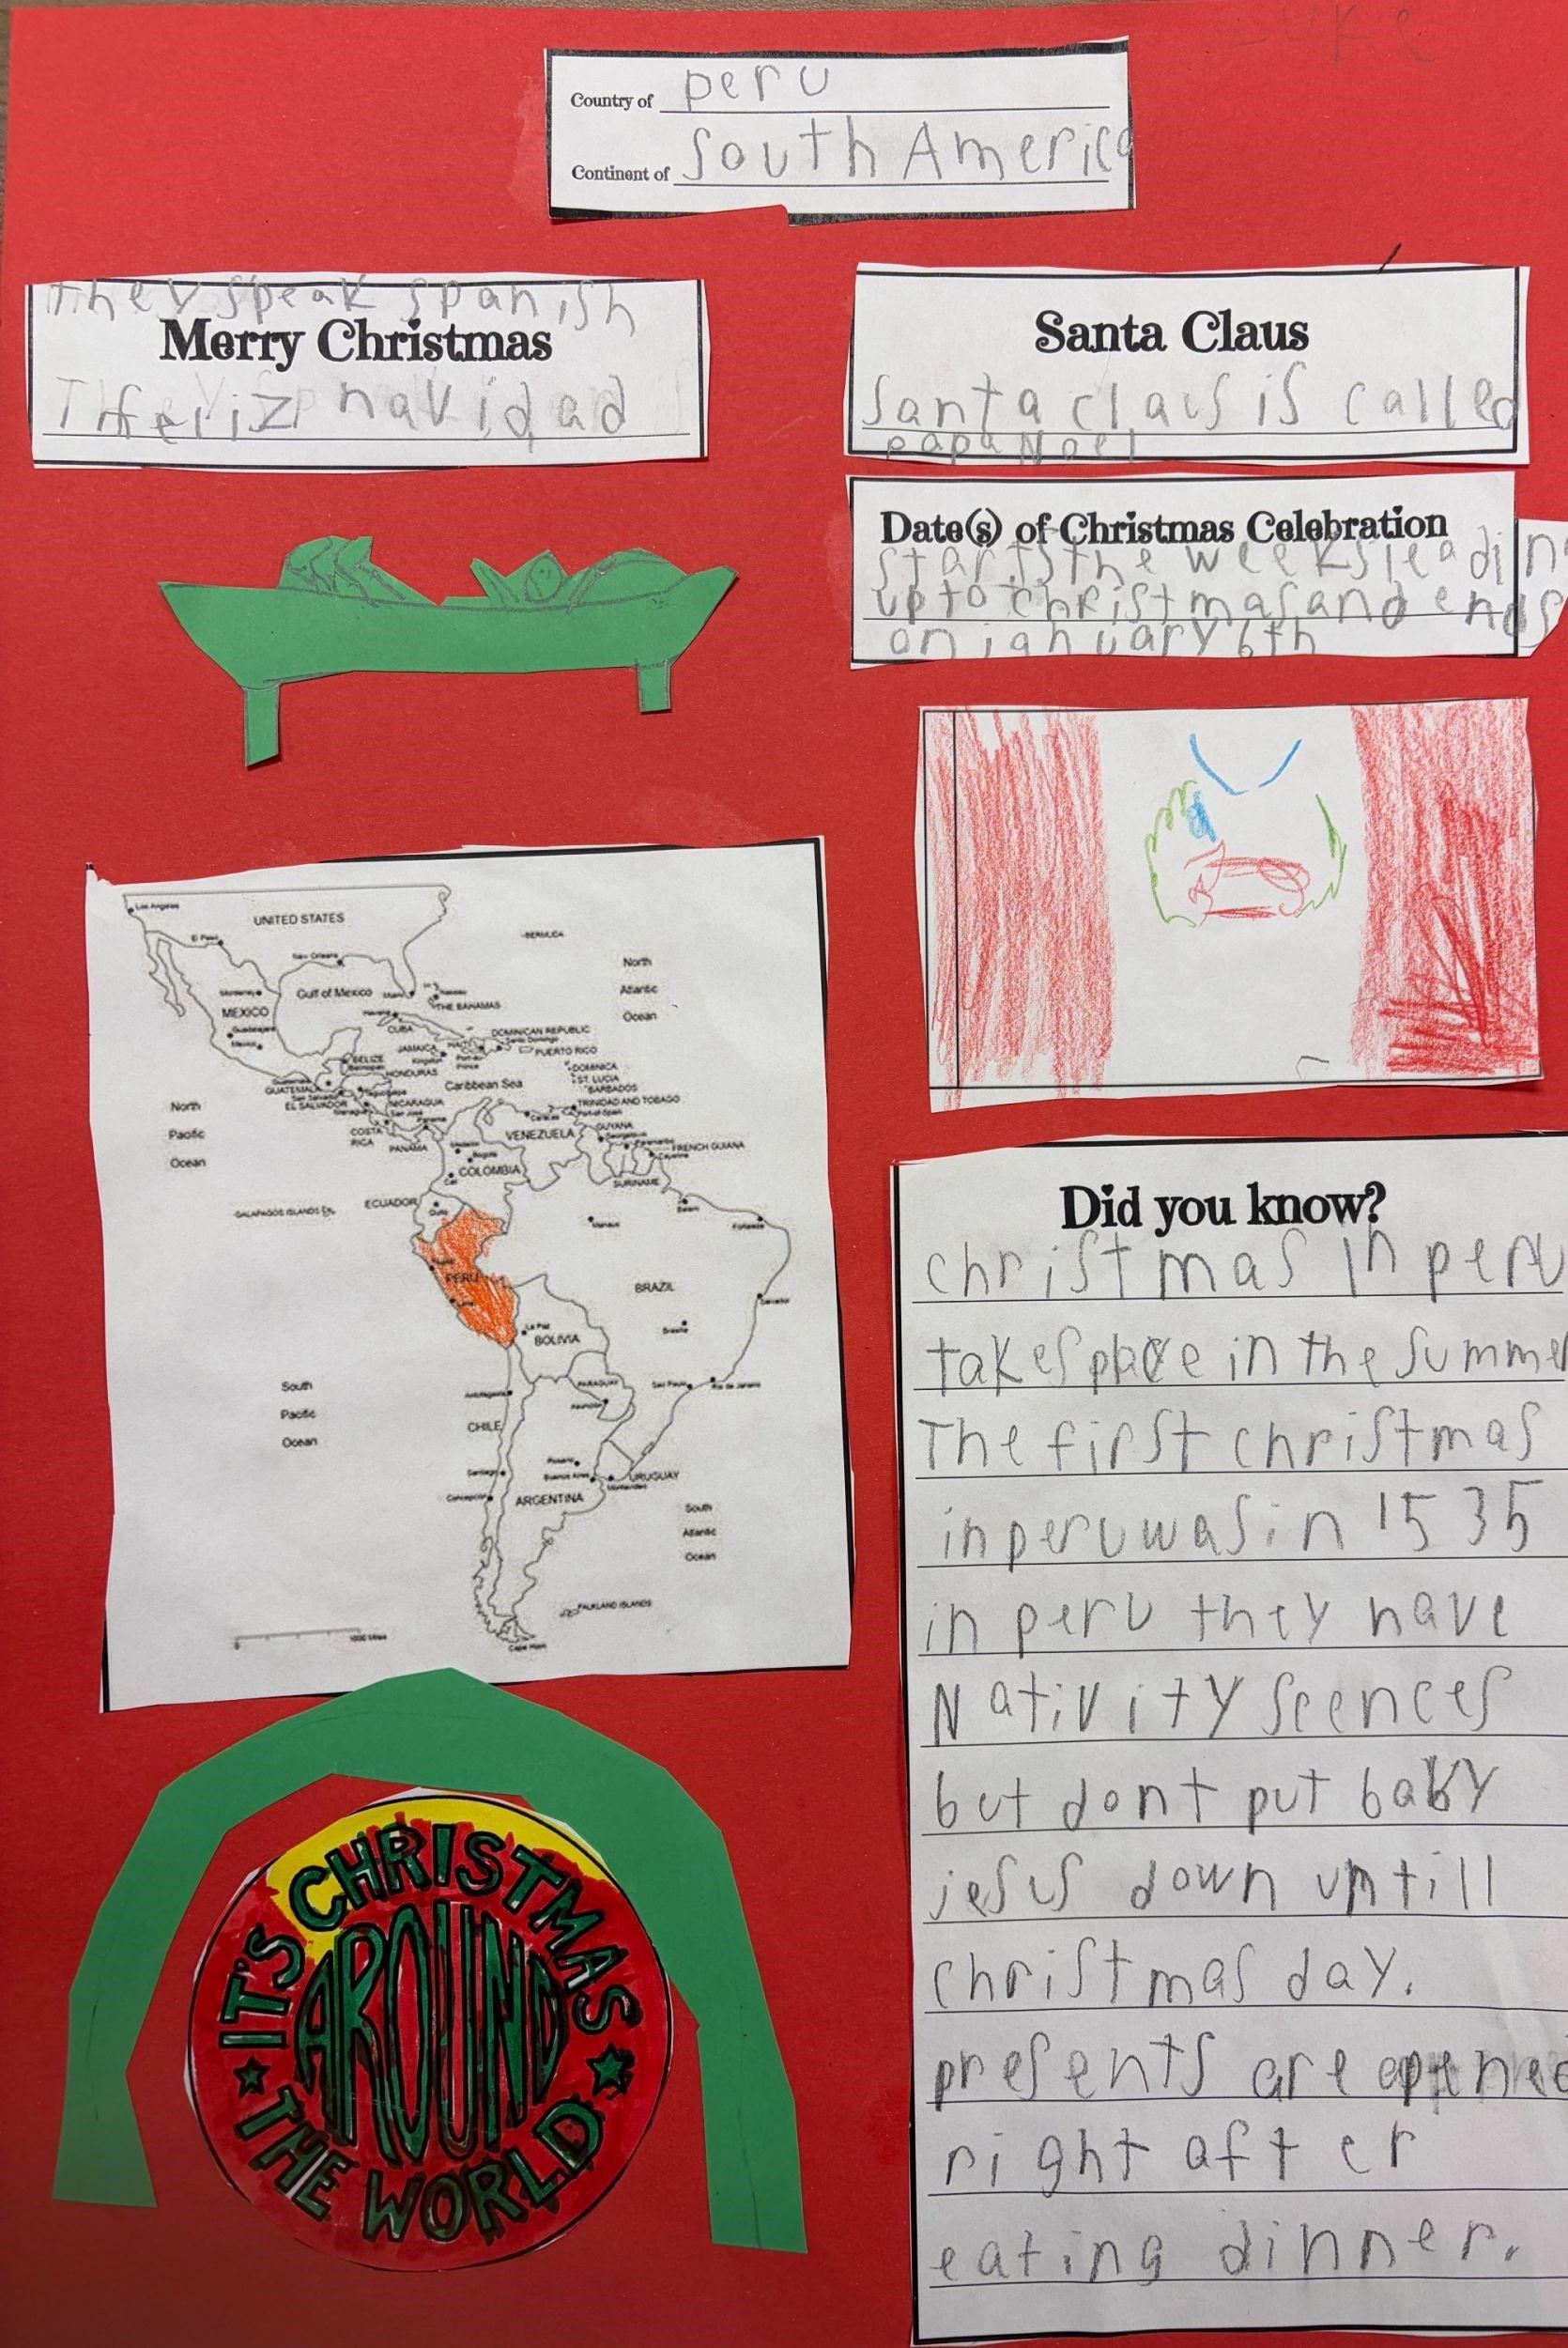 Country of peru
Continent of South America
They speak spanish
Merry Christmas
feliz navidad
Santa Claus
Santa claus is called
papa Noel
Date(s) of Christmas Celebration
starts the weeks leadin
up to christmas and ends
on january 6th
Los Angeles
UNITED STATES
El Paso
BERMUDA
New Orleans
North
Atlantic
Ocean
Monterrey
Gulf of Mexico
Miami
Nassau
THE BAHAMAS
MEXICO
Havana
CUBA
Guadalajara
Mexico
DOMINICAN REPUBLIC
Santo Domingo
JAMAICA
HAITI
PUERTO RICO
Kingston
Port-au-
Prince
BELIZE
Belmopan
HONDURAS
DOMINICA
ST. LUCIA
BARBADOS
Caribbean Sea
Guatemala
GUATEMALA
San Salvador
Tegucigalpa
EL SALVADOR
NICARAGUA
Managua
San José
TRINIDAD AND TOBAGO
Port-of-Spain
Caracas
North
Pacific
Ocean
COSTA
RICA
Panama
PANAMA
VENEZUELA
GUYANA
Georgetown
Paramaribo
FRENCH GUIANA
Cayenne
Medellin
Bogota
COLOMBIA
Cali
SURINAME
ECUADOR
Quito
GALAPAGOS ISLANDS
Belem
Manaus
Fortaleza
PERU
Lima
BRAZIL
Salvador
La Paz
BOLIVIA
Brasilia
South
Pacific
Ocean
Antofagasta
PARAGUAY
Asuncion
Sao Paulo
Rio de Janeiro
CHILE
Rosario
Santiago
Buenos Aires
URUGUAY
Montevideo
Concepcion
ARGENTINA
South
Atlantic
Ocean
FALKLAND ISLANDS
1000 Miles
Cape Horn
Did you know?
christmas in peru
takes place in the summe
The first christmas
in peru was in 1535
in peru they have
Nativity scences
but dont put baby
jesus down untill
christmas day.
presents are opened
right after
eating dinner.
IT'S CHRISTMAS
AROUND
THE WORLD